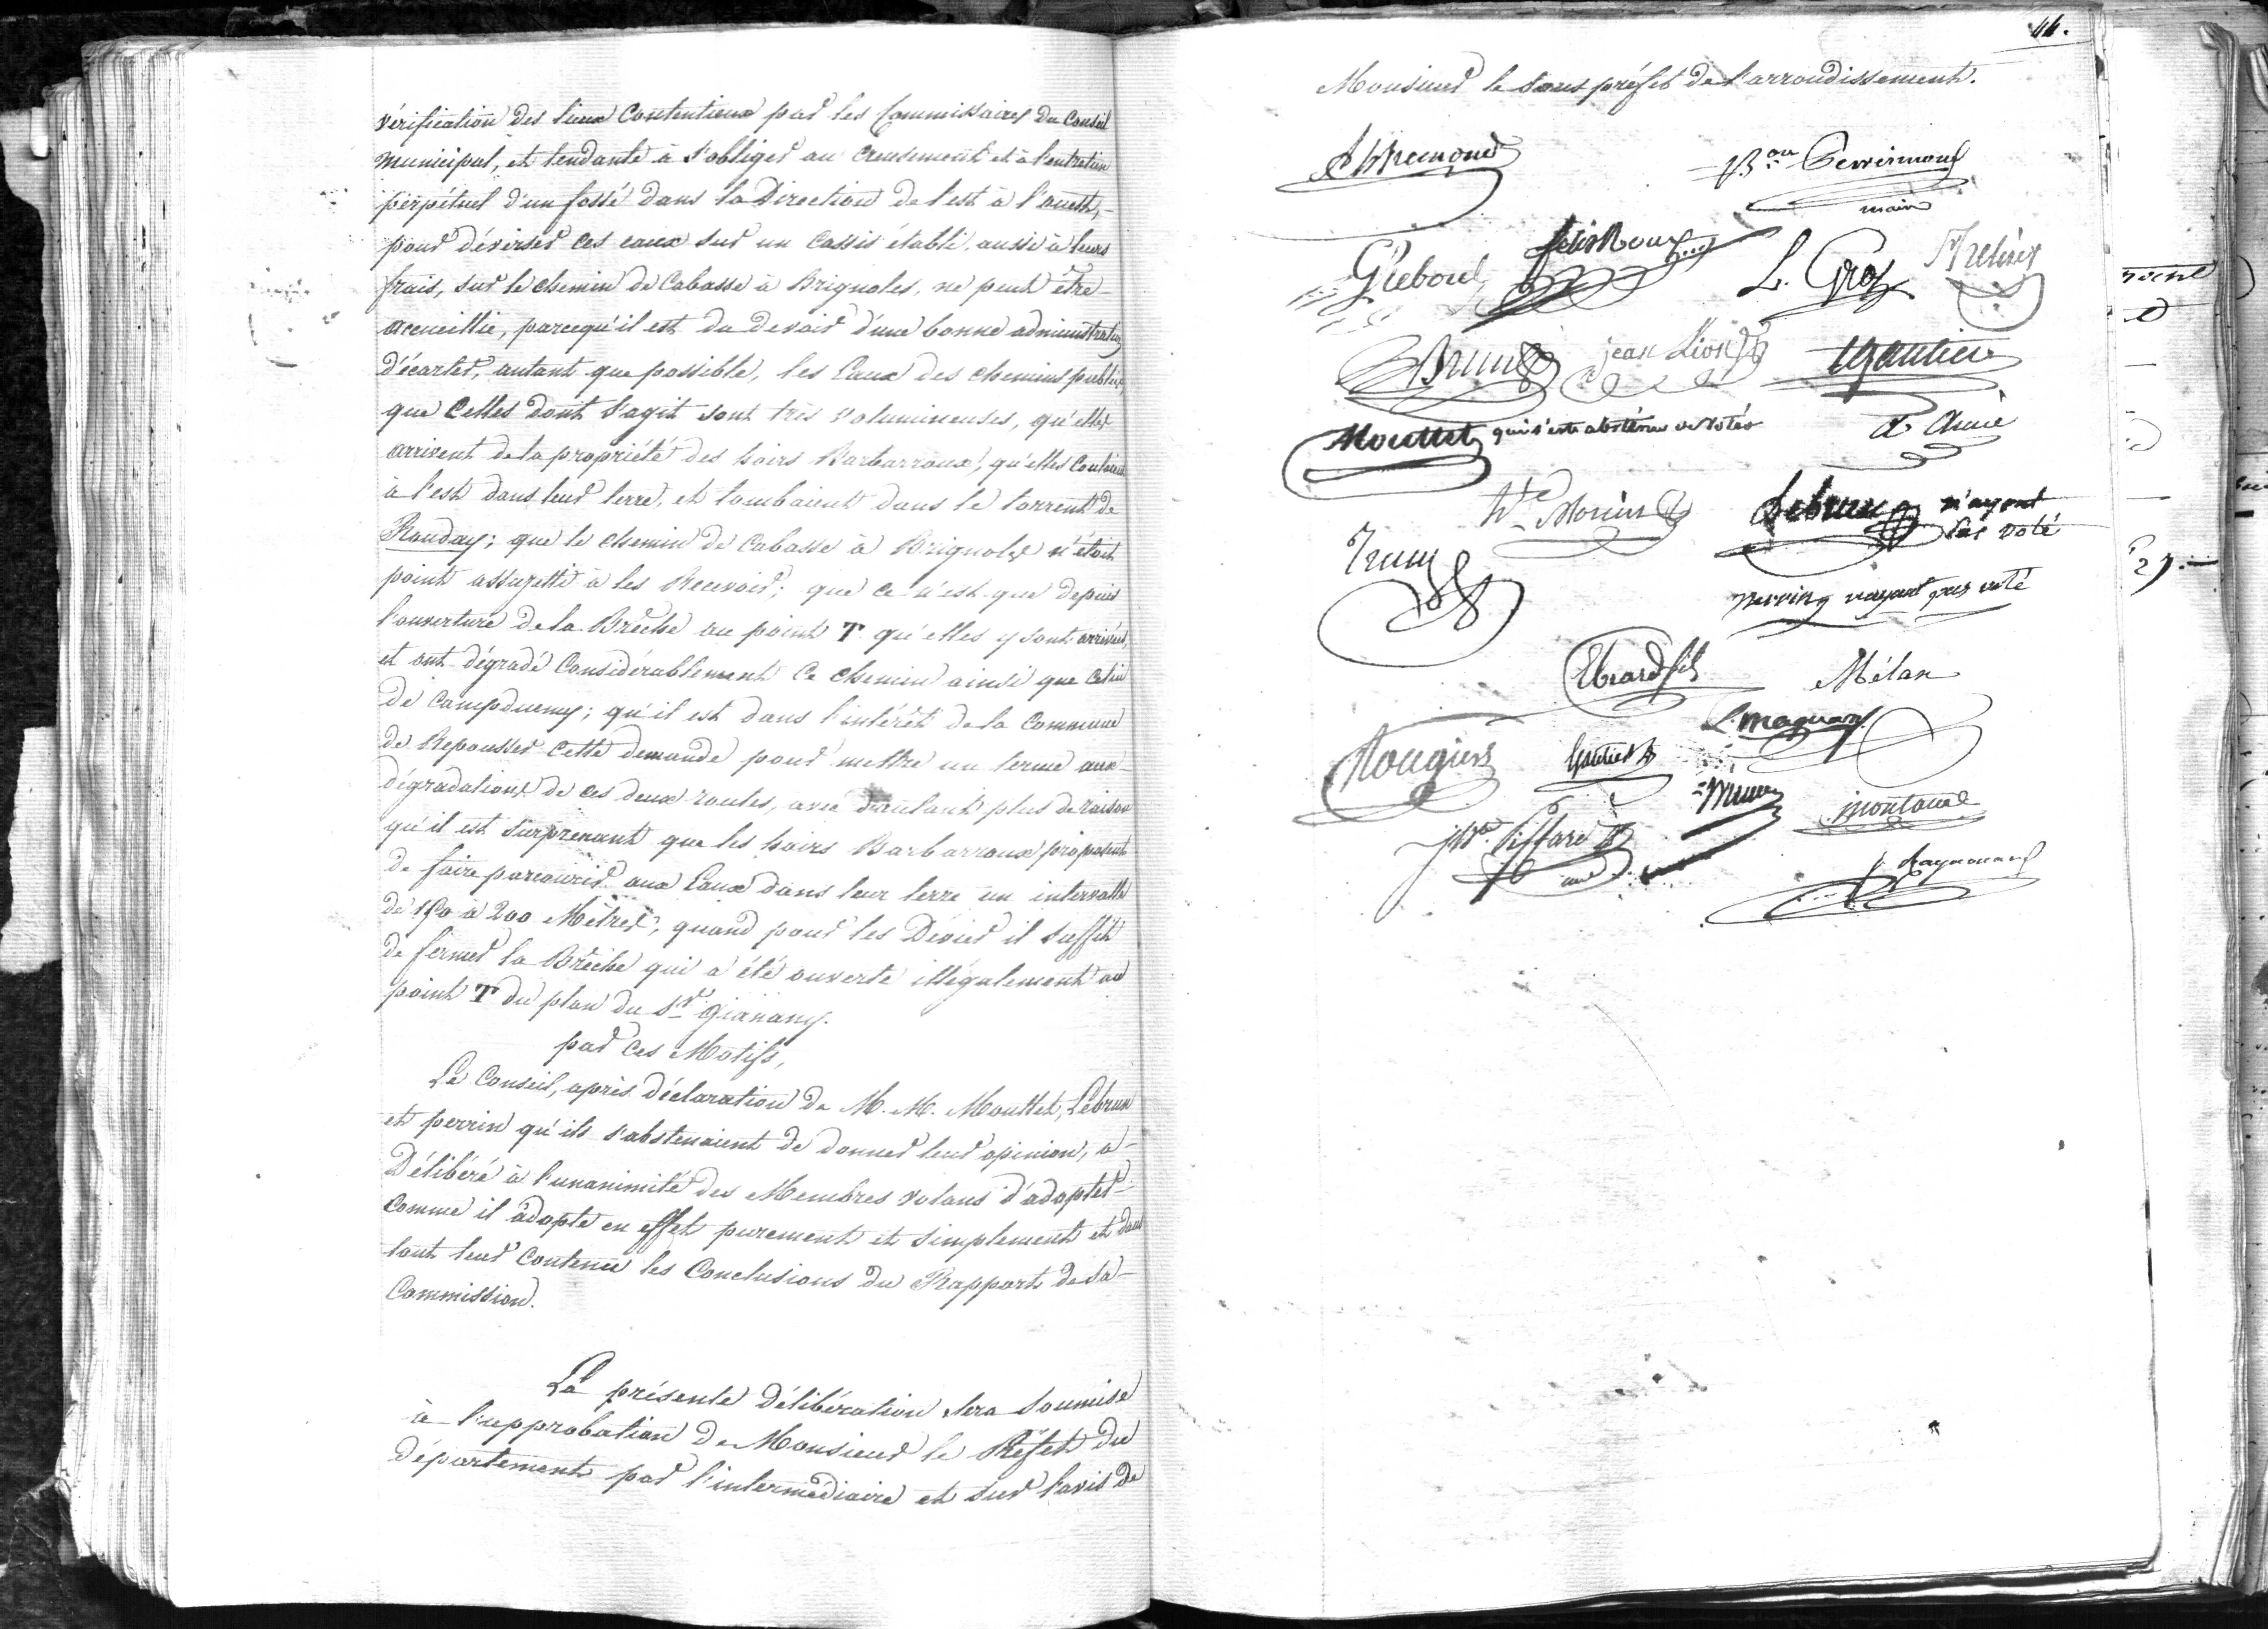 vérification des lieux Contentieux par les Commissaires du Conseil
municipal, et tendante à s'obliger au creusement et à l'entretien
perpétuel d'un fossé dans la Direction de l'est à l'ouest,-
pour déverser ces eaux sur un Cassis établi, aussi à leurs
frais, sur le chemin de Cabasse à Brignoles, ne peut être-
accueillie, parcequ'il est du devoir d'une bonne administration
d'écarter, autant que possible, les Eaux des chemins publics,
que Celles dont s'agit sont très volumineuses, qu'elles
arrivent de la propriété des hoirs Barbarroux, qu'elles Coulaient
à l'est dans leur terre, et tombaient dans le torrent de
Rauday; que le chemin de Cabasse à Brignoles n'était
point assujetti à les Recevoir; que ce n'est que depuis
l'ouverture de la Brêche au point T. qu'elles y sont arrivées,
et ont dégradé Considérablement Ce chemin ainsi que Celui
de Campdumy; qu'il est dans l'intérêt de la Commune
de Repousser Cette demande pour mettre un terme aux-
dégradations de ces deux routes, avec d'autant plus de raison
qu'il est surprenant que les hoirs Barbarroux proposent
de faire parcourir aux Eaux dans leur terre un intervalle
de 150 à 200 Mètres, quand pour les Dévier il suffit
de fermer la Brêche qui a été ouverte illégalement au
point T du plan du Sr. Gianany.
par Ces Motifs,
Le Conseil, après déclaration de M. M. Mouttet, Lebrun
et perrin qu'ils s'abstenaient de donner leur opinion, a-
Délibéré à l'unanimité des Membres votans d'adopter-
Comme il adopte en effet purement et simplement et dans
tout leur Contenu les Conclusions du Rapport de sa-
Commission.
La présente Délibération sera Soumise
à l'approbation de Monsieur le Préfet du
Département par l'intermédiaire et sur l'avis de
44.
Monsieur le sous préfet de l'arrondissement.
Bon
maire
felix Roux
L. Gros
Brun jean Lion Gautier
Mouttet qui s'est abstenu de voter
Lebrun n'ayant
pas voté
perrin n'ayant pas voté
Ebrard fils Mélan
L. magnan
Rougiers Gautier
Piffard montaud
Raynouard